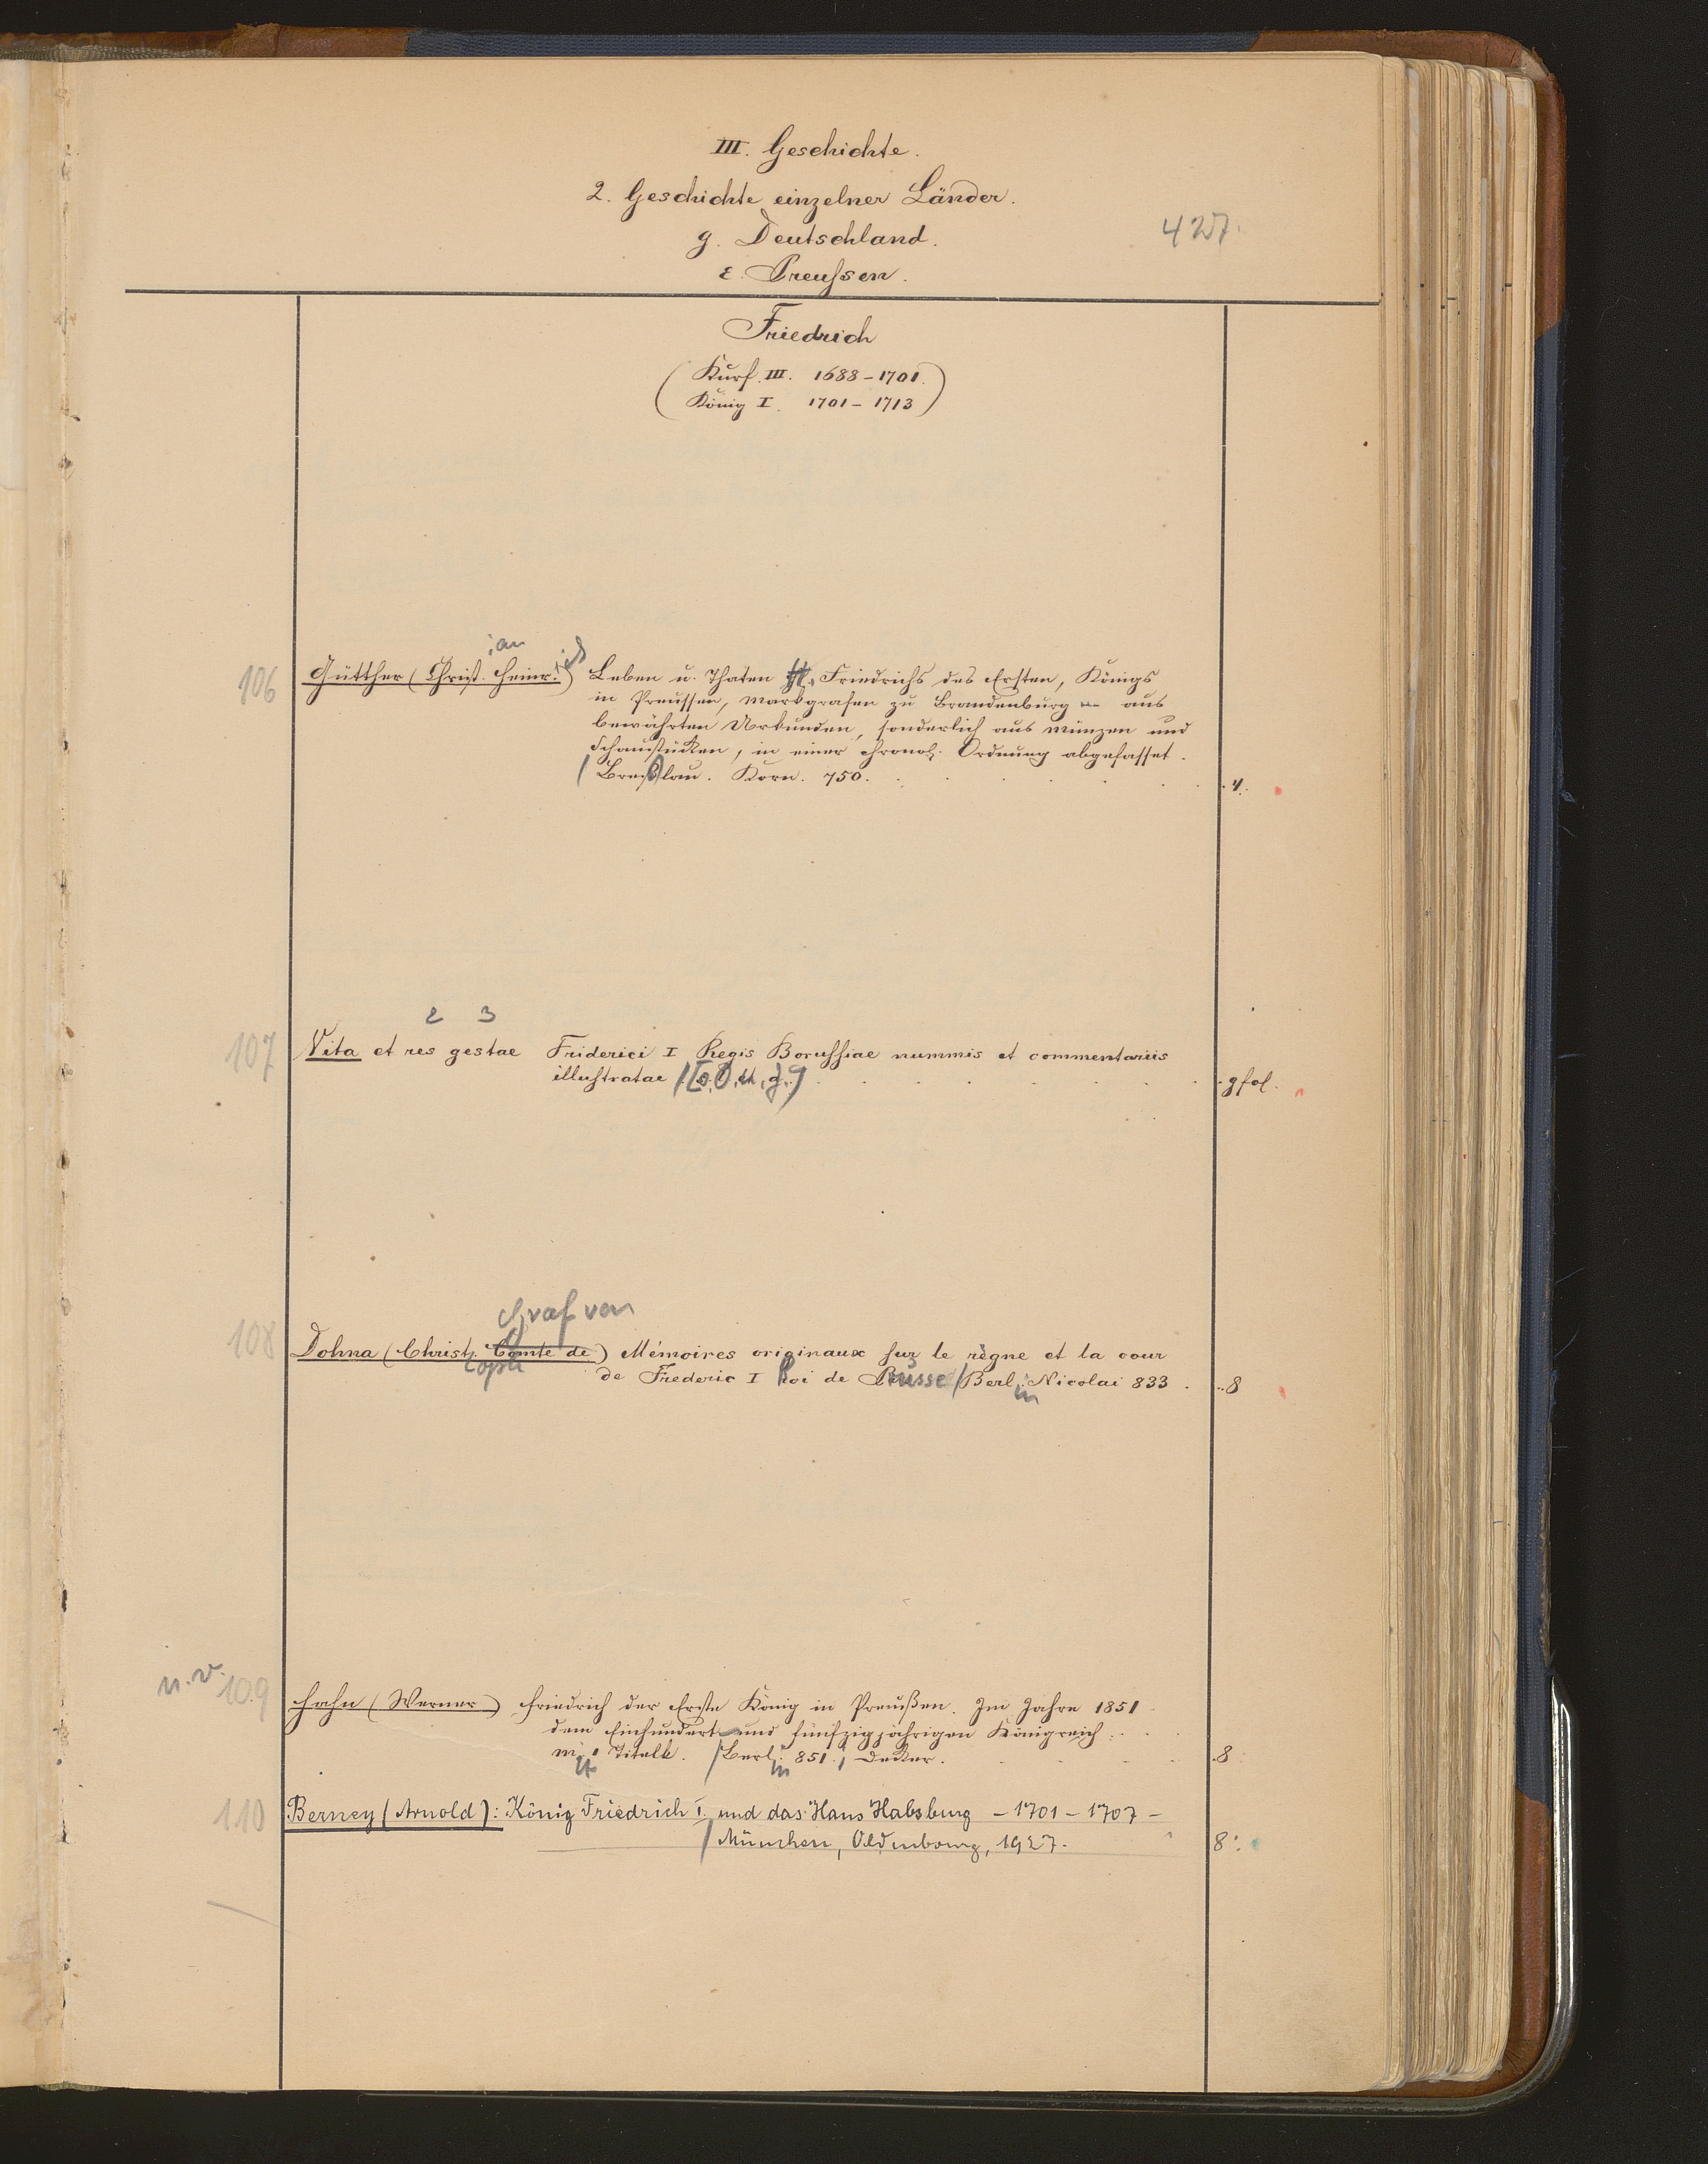 III. Geschichte.
2. Geschichte einzelner Länder.
g. Deutschland.
427.
ε. Preussen.
Friedrich
(Kurf. III. 1688-1701.
König I. 1701-1713)
ian
ich
106 Gütther (Christ. Heinr.) Leben u. Thaten Friedrichs des Ersten, Königs
in Preussen, Markgrafen zu Brandenburg aus
bewährten Urkunden, sonderlich aus Münzen und
Schaustücken, in einer chronol. Ordnung abgefasset.
/ Breslau. Korn. 750. 4.
2 3
107 Vita et res gestae Friderici I Regis Borussiae nummis et commentariis
illustratae / [o. O. u. J.] gfol.
Graf von
108 Dohna (Christ. Comte de) Mémoires originaux sur le règne et la cour
oph
de Frederic I Roi de Prusse / Berl. Nicolai 833. 8
in
n. v. 109 Hahn (Werner) Friedrich der Erste König in Preußen. Im Jahre 1851
dem Einhundert und fünfzigjährigen Königreich.
m. Titelk. / Berl. 851. Decker. 8
in
110 Berney (Arnold): König Friedrich I. und das Haus Habsburg - 1701 - 1707 -
/ München, Oldenbourg, 1927. 8: